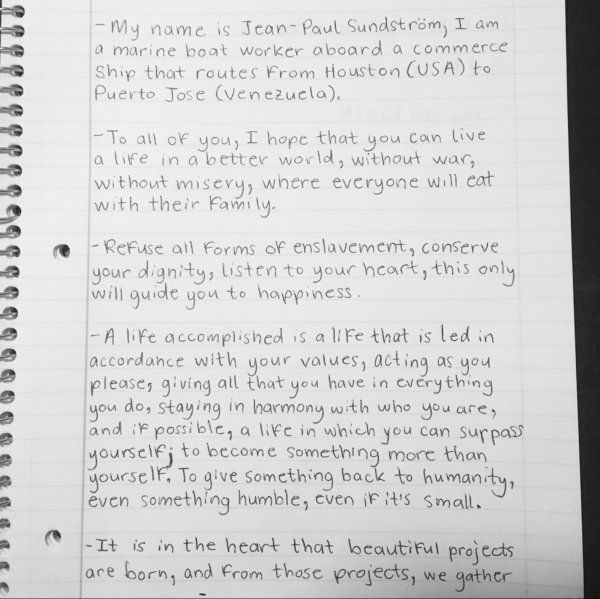 - My name is Jean-Paul Sundström, I am
a marine boat worker aboard a commerce
Ship that routes From Houston (USA) to
Puerto Jose (Venezuela).
- To all of you, I hope that you can live
a life in a better world, without war,
without misery, where everyone will eat
with their Family.
- Refuse all Forms of enslavement, conserve
your dignity, listen to your heart, this only
will guide you to happiness.
- A life accomplished is a life that is led in
accordance with your values, acting as you
please, giving all that you have in everything
you do, staying in harmony with who you are,
and if possible, a life in which you can surpass
yourself; to become something more than
yourself. To give something back to humanity,
even something humble, even if it's small.
- It is in the heart that beautiful projects
are born, and From those projects, we gather